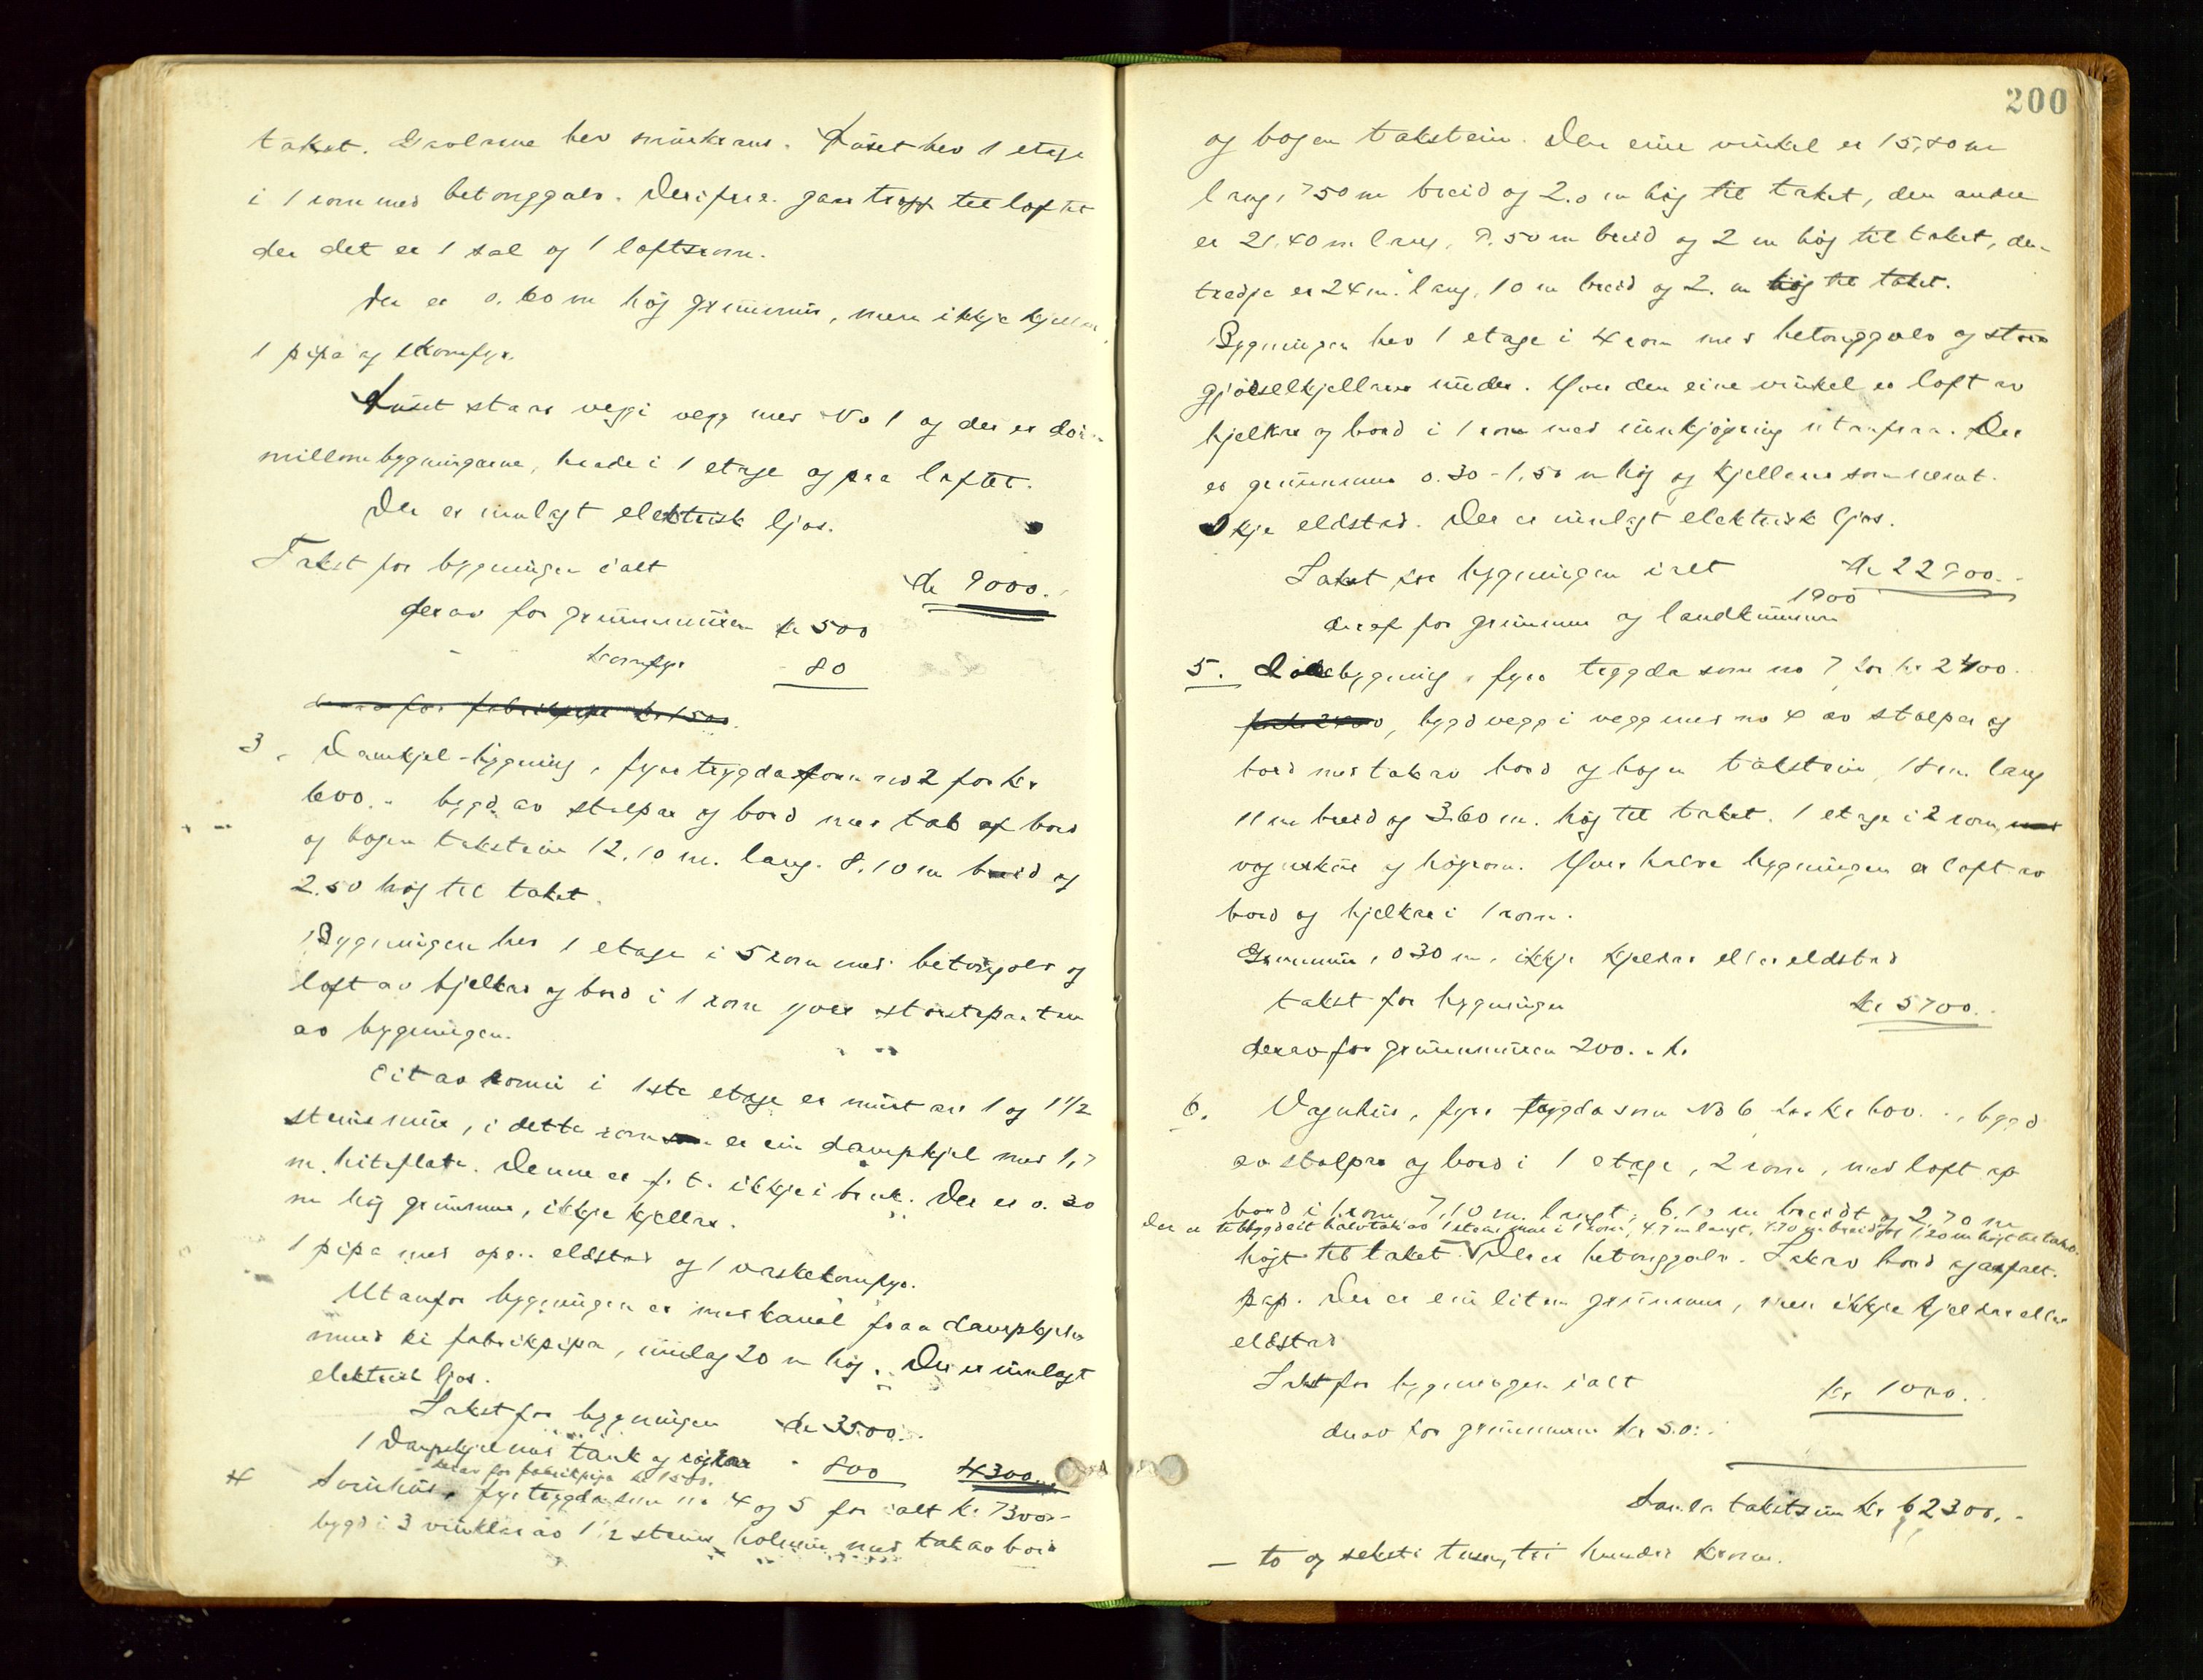 taket. Gavlarne hev murkrans. Huset hev 1 etage
i 1 rom med betonggolv. Derifraa gaar trapp til loftet
der det er 1 sal og 1 loftsrom.
Der er 0.60 m høg grunnmur, men ikkje kjellar,
1 pipa og 1 komfyr.
Huset staar vegg i vegg med No 1 og der er dør
millom bygningarne, baade i 1 etage og paa loftet.
Der er innlagt elektrisk ljos.
Takst for bygningen i alt kr 9000.-
derav for grunnmuren kr 500
- komfyr - 80
derav for fabrikpipa kr 1500.
3. Dampkjel-bygning, fyrr trygda som no 2 for kr
600.- bygd av stolpar og bord med tak af bord
og bogen takstein 12,10 m. lang. 8,10 m breid og
2.50 høg til taket.
Bygningen hev 1 etage i 5 rom med betongolv og
loft av bjelkar og bord i 1 rom yver størsteparten
av bygningen.
Eit av romi i 1ste etage er murt av 1 og 1 1/2
steins mur, i dette rom er ein dampkjel med 1,7
m. hiteflate. Denne er f. t. ikkje i bruk. Der er 0.30
m høg grunnmur, ikkje kjellar.
1 pipa med open eldstad og 1 vaskekomfyr.
Utanfor bygningen er med kanal fraa dampkjelen
murd ei fabrikpipa, innlag 20 m høg. Der er innlagt
elektrisk ljos.
Takst for bygningen kr 3500.-
1 Dampkjel med tank og røirar - 800 4300.-
derav for fabrikpipa kr 1500.
4 Svinhus, fyrr trygda som no 4 og 5 for i alt kr 7300.-
bygd i 3 vinklar av 1 1/2 steins holmur med tak av bord
200
og bogen takstein. Den eine vinkel er 15,40 m
lang, 7.50 m breid og 2.0 m høg til taket, den andre
er 21.40 m lang, 9.50 m breid og 2 m høg til taket, den
tredje er 24 m. lang, 10 m breid og 2. m høg til taket.
Bygningen hev 1 etage i 4 rom med betonggolv og stor
gjødselkjellar under. Yver den eine vinkel er loft av
bjelkar og bord i 1 rom med innkjøyring utanfraa. Der
er grunnmur 0.30 - 1,50 m høg og kjellar som nemt.
Ikkje eldstad. Der er innlagt elektrisk ljos.
Takst for bygningen i alt kr 22900.-
1900
deraf for grunnmur og landkummur
5. bygning, fyrr trygda som no 7 for kr 2400.
bygd vegg i vegg med no 4 av stolpar og
bord med tak av bord og bogen takstein, 18 m. lang
11 m breid og 3.60 m. høg til taket. 1 etage i 2 rom,
vognskur og høyrom. Yver halve bygningen er loft av
bord og bjelkar i 1 rom.
Grunnmur, 0.30 m. ikkje kjellar eller eldstad
takst for bygningen kr 5700.-
derav for grunnmuren 200.- kr
6. Vognhus, fyrr trygda som No 6 for kr 600.-, bygd
av stolpar og bord i 1 etage, 2 rom, med loft af
bord i 1 rom 7,10 m. langt, 6.10 m breidt og 2,70 m
Der er tilbygd eit halvtak av 1 steins mur i 1 rom, 4.7 m langt, 1.70 m breidt og 1,20 m høgt til taket.
høgt til taket. Der er betonggolv. Tak av bord og asfalt-
pap. Der er ein liten grunnmur, men ikkje kjellar eller
eldstad
Takst for bygningen i alt kr 1000.-
derav for grunnmuren kr 50.-
Samla takstsum kr 62300.-
- to og seksti tusen, tri hundre kronor.